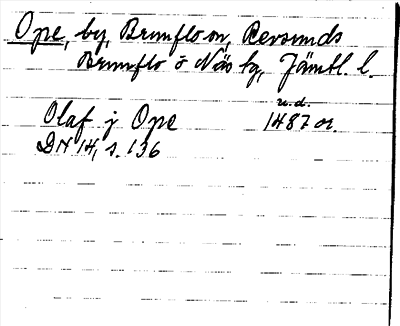 Ope, by, Brunflo sn, Revsunds
Brunflo o Näs tg, Jämtl. l.
u.d.
Olaf j Ope 1487 or.
DN 14, s. 136